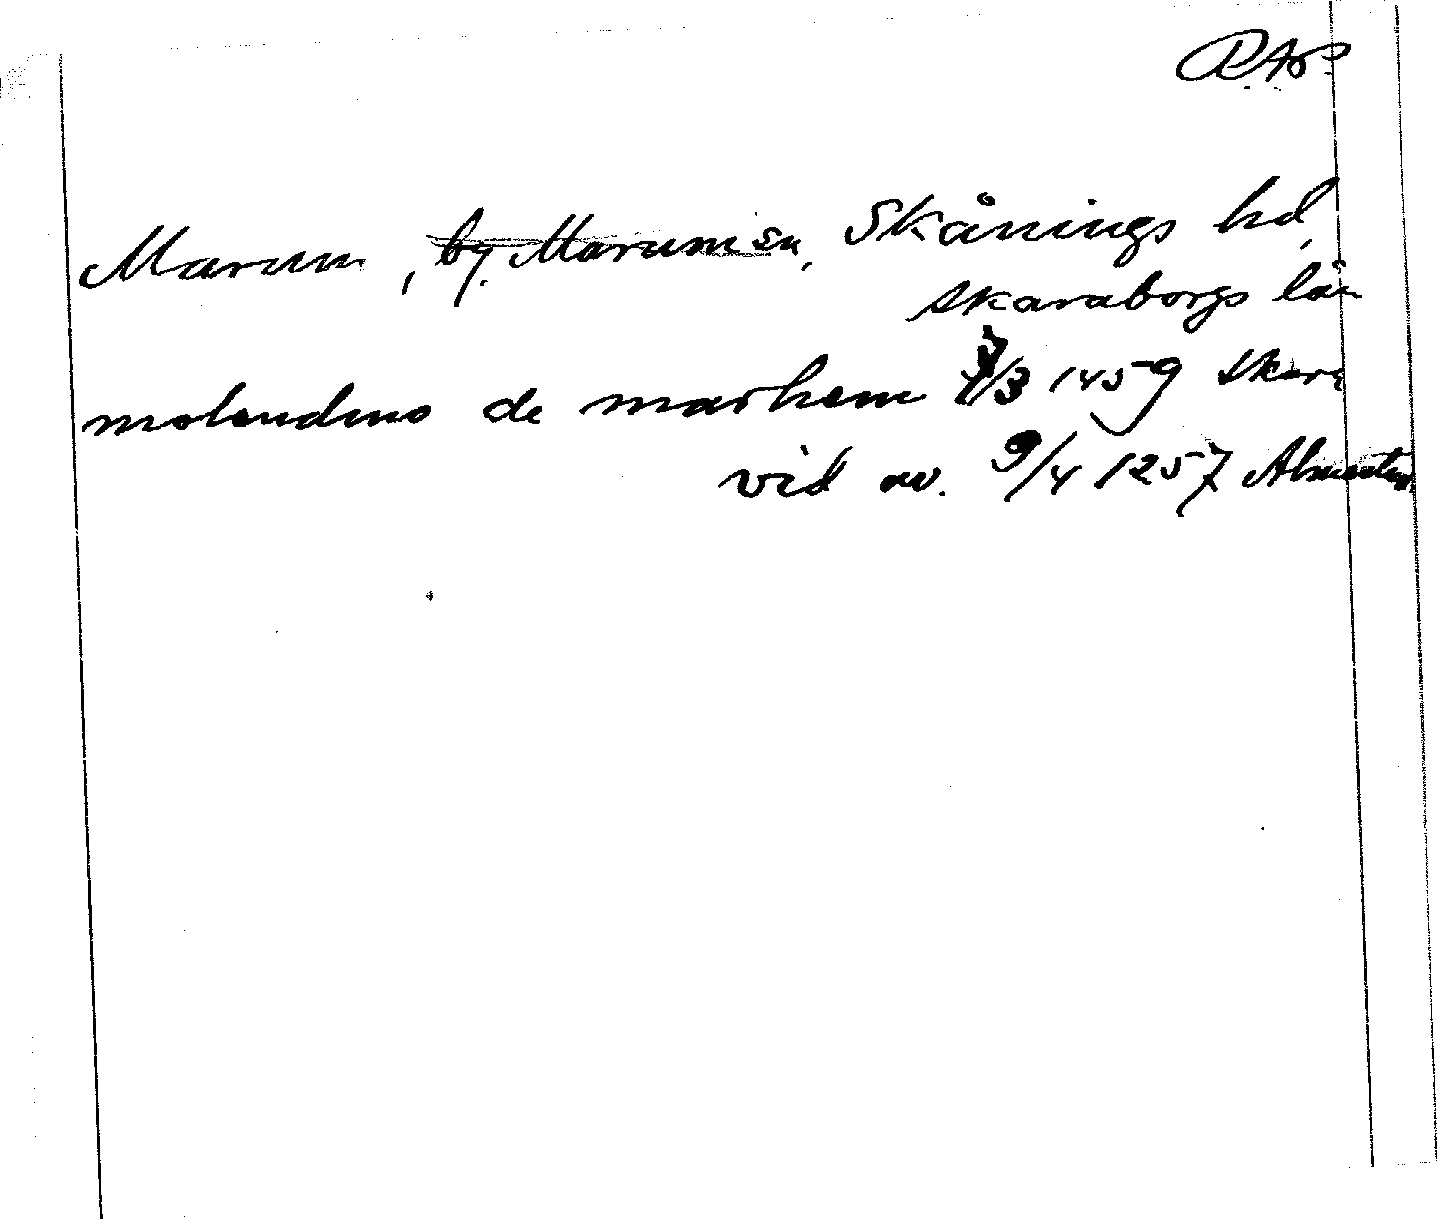 RAp.
Marum, by, Marum sn, Skånings hd,
Skaraborgs län
molendino de marhem 7/3 1459 Skara
vid av. 9/4 1257